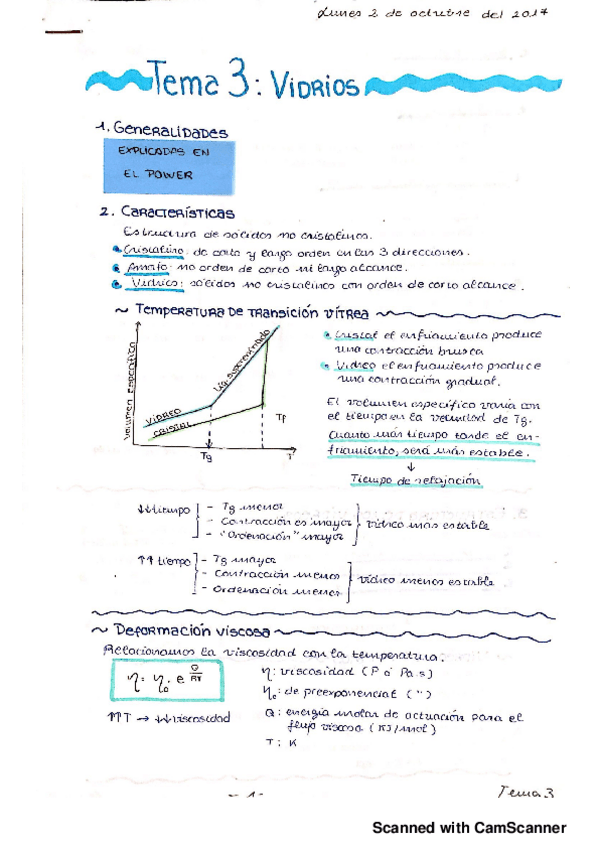 Lunes 2 de octubre del 2017
Tema 3: Vidrios
1. Generalidades
EXPLICADAS EN
EL POWER
2. Características
Estructura de sólidos no cristalinos.
Cristalino: de corto y largo orden en las 3 direcciones.
Amorfo: no orden de corto ni largo alcance.
Vídrico: sólidos no cristalinos con orden de corto alcance.
~ Temperatura de transición vítrea ~
Volumen específico
VIDRIO
CRISTAL
Líq. subenfriado
Tg
Tf
T
Cristal el enfriamiento produce
una contracción brusca
Vidrio el enfriamiento produce
una contracción gradual.
El volumen específico varía con
el tiempo en la velocidad de Tg.
Cuanto más tiempo tarde el en-
friamiento, será más estable.
↓
Tiempo de relajación
↓↓ tiempo
- Tg menor
- Contracción es mayor
- "Ordenación" mayor
vídrico más estable
↑↑ tiempo
- Tg mayor
- Contracción menor
- Ordenación menor
vídrico menos estable
~ Deformación viscosa ~
Relacionamos la viscosidad con la temperatura.
η = η₀ · e^(Q/RT)
↑↑T → ↓↓ viscosidad
η: viscosidad (P ó Pa·s)
η₀: de preexponencial (")
Q: energía molar de actuación para el
flujo viscoso (KJ/mol)
T: K
- 1 -
Tema 3
Scanned with CamScanner